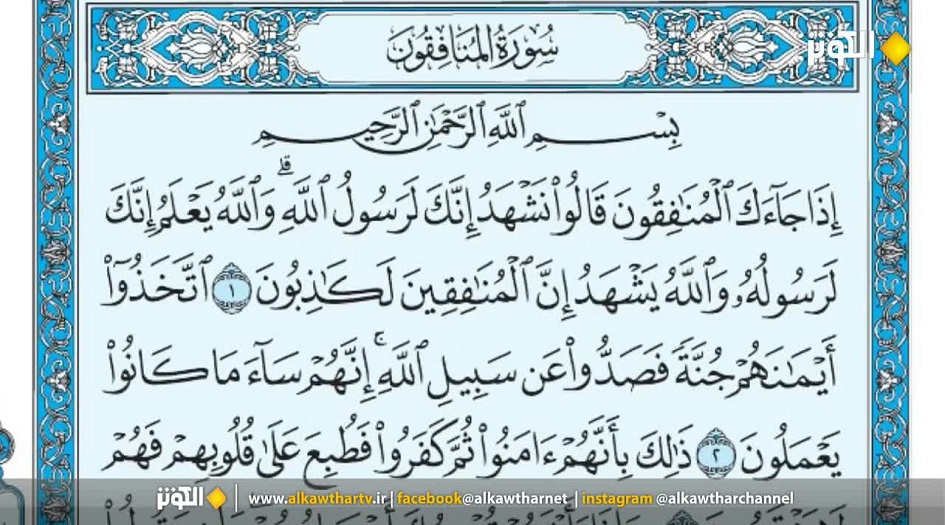 سُورَةُ المُنَافِقُونَ
الكوثر
بِسْمِ ٱللَّهِ ٱلرَّحْمَٰنِ ٱلرَّحِيمِ
إِذَا جَآءَكَ ٱلْمُنَٰفِقُونَ قَالُوا۟ نَشْهَدُ إِنَّكَ لَرَسُولُ ٱللَّهِ ۗ وَٱللَّهُ يَعْلَمُ إِنَّكَ
لَرَسُولُهُۥ وَٱللَّهُ يَشْهَدُ إِنَّ ٱلْمُنَٰفِقِينَ لَكَٰذِبُونَ ١ ٱتَّخَذُوٓا۟
أَيْمَٰنَهُمْ جُنَّةً فَصَدُّوا۟ عَن سَبِيلِ ٱللَّهِ ۚ إِنَّهُمْ سَآءَ مَا كَانُوا۟
يَعْمَلُونَ ٢ ذَٰلِكَ بِأَنَّهُمْ ءَامَنُوا۟ ثُمَّ كَفَرُوا۟ فَطُبِعَ عَلَىٰ قُلُوبِهِمْ فَهُمْ
الكوثر | www.alkawthartv.ir | facebook@alkawtharnet | instagram @alkawtharchannel